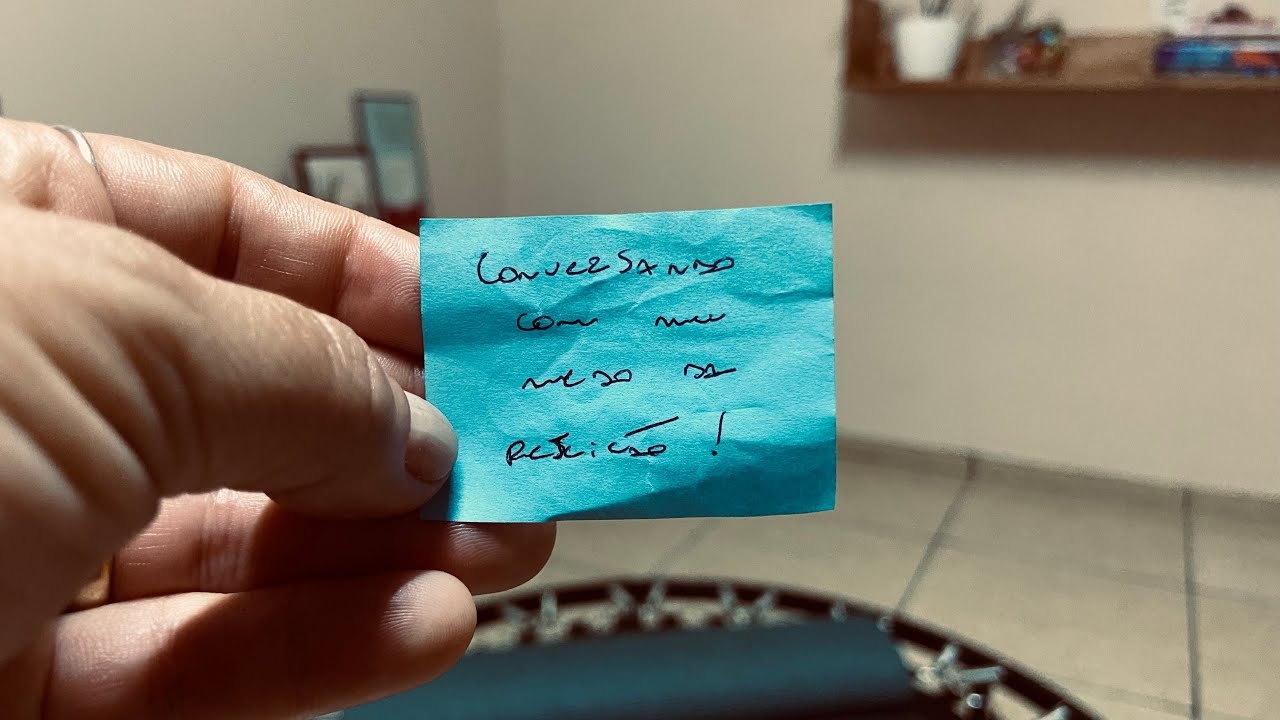 CONVERSANDO
COM MEU
MEDO DA
REJEIÇÃO!